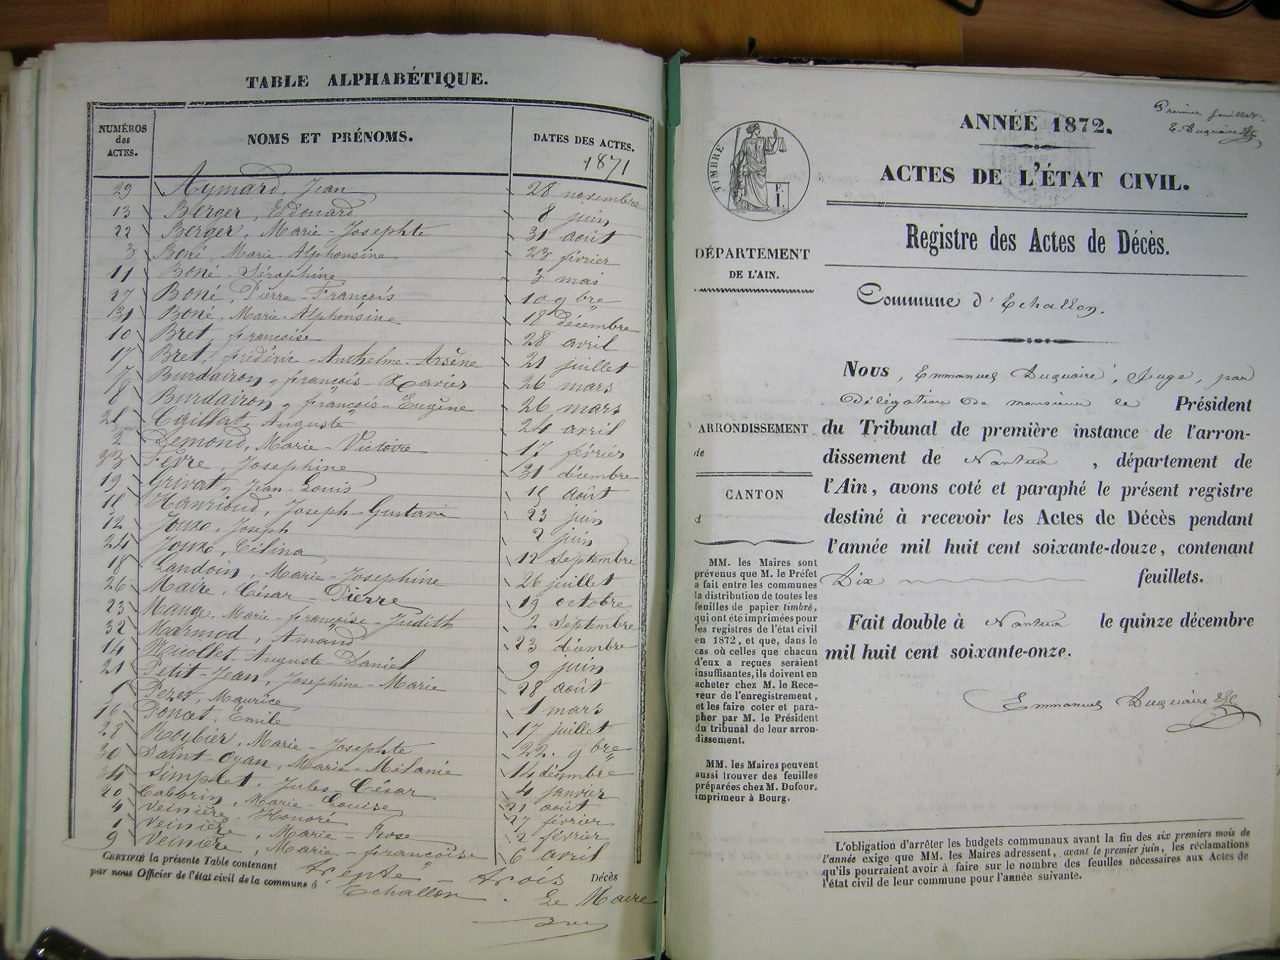 TABLE ALPHABÉTIQUE.
NUMÉROS des ACTES.
NOMS ET PRÉNOMS.
DATES DES ACTES.
1871
29 Aymard, Jean 28 novembre
13 Berger, Edouard 8 juin
22 Berger, Marie-Josephte 31 août
3 Boné, Marie Alphonsine 23 février
11 Boné, Séraphine 3 mai
27 Boné, Pierre-François 10 9bre
31 Boné, Marie Alphonsine 18 décembre
10 Bret, françoise 28 avril
17 Bret, frédéric-Anthelme-Arsène 21 juillet
7 Burdairon, françois-Xavier 26 mars
8 Burdairon, françois-Eugène 26 mars
Caillat, Auguste 21 avril
2 Demond, Marie-Victoire 17 février
33 Fèvre, Josephine 31 décembre
19 Grivat, Jean-Louis août
Hanrioud, Joseph-Gustave 23 juin
12 Joux, Joseph 2 juin
24 Joux, Célina 12 septembre
18 Landoin, Marie-Josephine 26 juillet
26 Maire, César-Pierre 19 octobre
23 Marie-françoise-Judith 2 septembre
32 Marmod, Amand 23 décembre
14 Auguste-Daniel 9 juin
21 Petit-Jean, Josephine-Marie 28 août
Maurice 1 mars
16 Poncet, Emile 17 juillet
28 Marie-Josephte 22 9bre
30 Saint-Oyan, Marie-Mélanie 14 décembre
Simplet, Jules-César 4 janvier
20 Marie-Louise 21 août
4 Veinière, Honoré 27 février
1 Veinière, Marie-Rose 2 février
9 Veinière, Marie-françoise 6 avril
CERTIFIÉ la présente Table contenant trente-trois Décès
par nous Officier de l'état civil de la commune d'Echallon. Le Maire
Premier feuillet.
E. Duquaire
ANNÉE 1872.
ACTES DE L'ÉTAT CIVIL.
Registre des Actes de Décès.
TIMBRE
F. 1.
DÉPARTEMENT
DE L'AIN.
ARRONDISSEMENT
de
CANTON
d
MM. les Maires sont
prévenus que M. le Préfet
a fait entre les communes
la distribution de toutes les
feuilles de papier timbré,
qui ont été imprimées pour
les registres de l'état civil
en 1872, et que, dans le
cas où celles que chacun
d'eux a reçues seraient
insuffisantes, ils doivent en
acheter chez M. le Rece-
veur de l'enregistrement,
et les faire coter et para-
pher par M. le Président
du tribunal de leur arron-
dissement.
MM. les Maires peuvent
aussi trouver des feuilles
préparées chez M. Dufour,
imprimeur à Bourg.
Commune d'Echallon.
Nous, Emmanuel Duquaire, Juge, par
délégation de monsieur le Président
du Tribunal de première instance de l'arron-
dissement de Nantua, département de
l'Ain, avons coté et paraphé le présent registre
destiné à recevoir les Actes de Décès pendant
l'année mil huit cent soixante-douze, contenant
Dix feuillets.
Fait double à Nantua le quinze décembre
mil huit cent soixante-onze.
Emmanuel Duquaire
L'obligation d'arrêter les budgets communaux avant la fin des six premiers mois de
l'année exige que MM. les Maires adressent, avant le premier juin, les réclamations
qu'ils pourraient avoir à faire sur le nombre des feuilles nécessaires aux Actes de
l'état civil de leur commune pour l'année suivante.